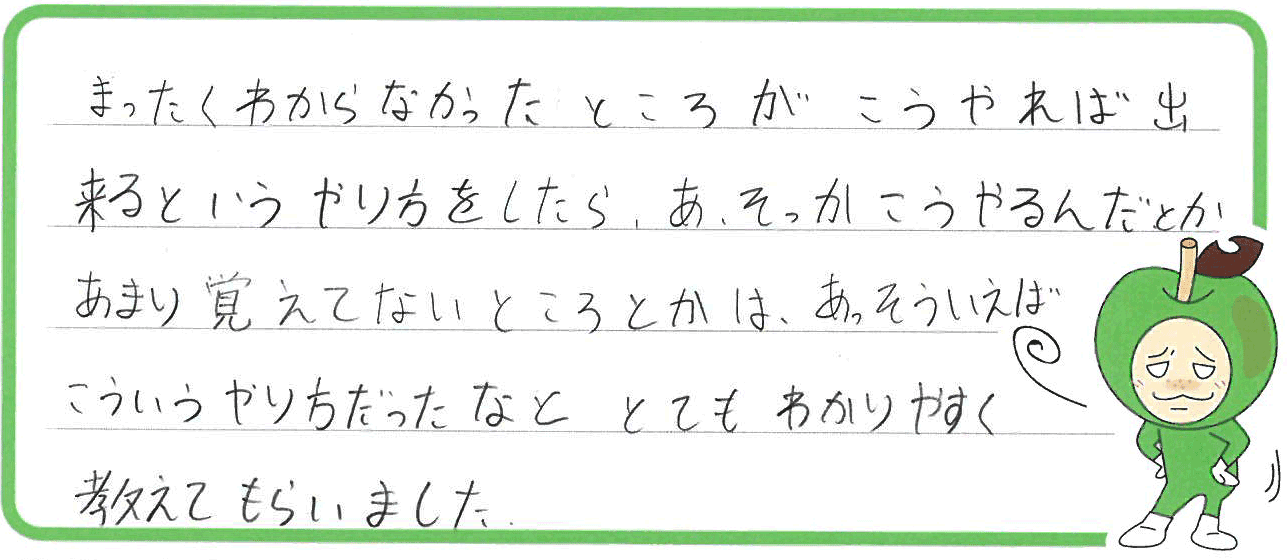 まったくわからなかったところがこうやれば出
来るというやり方をしたら、あ、そっかこうやるんだとか
あまり覚えてないところとかは、あっそういえば
こういうやり方だったなと とてもわかりやすく
教えてもらいました。